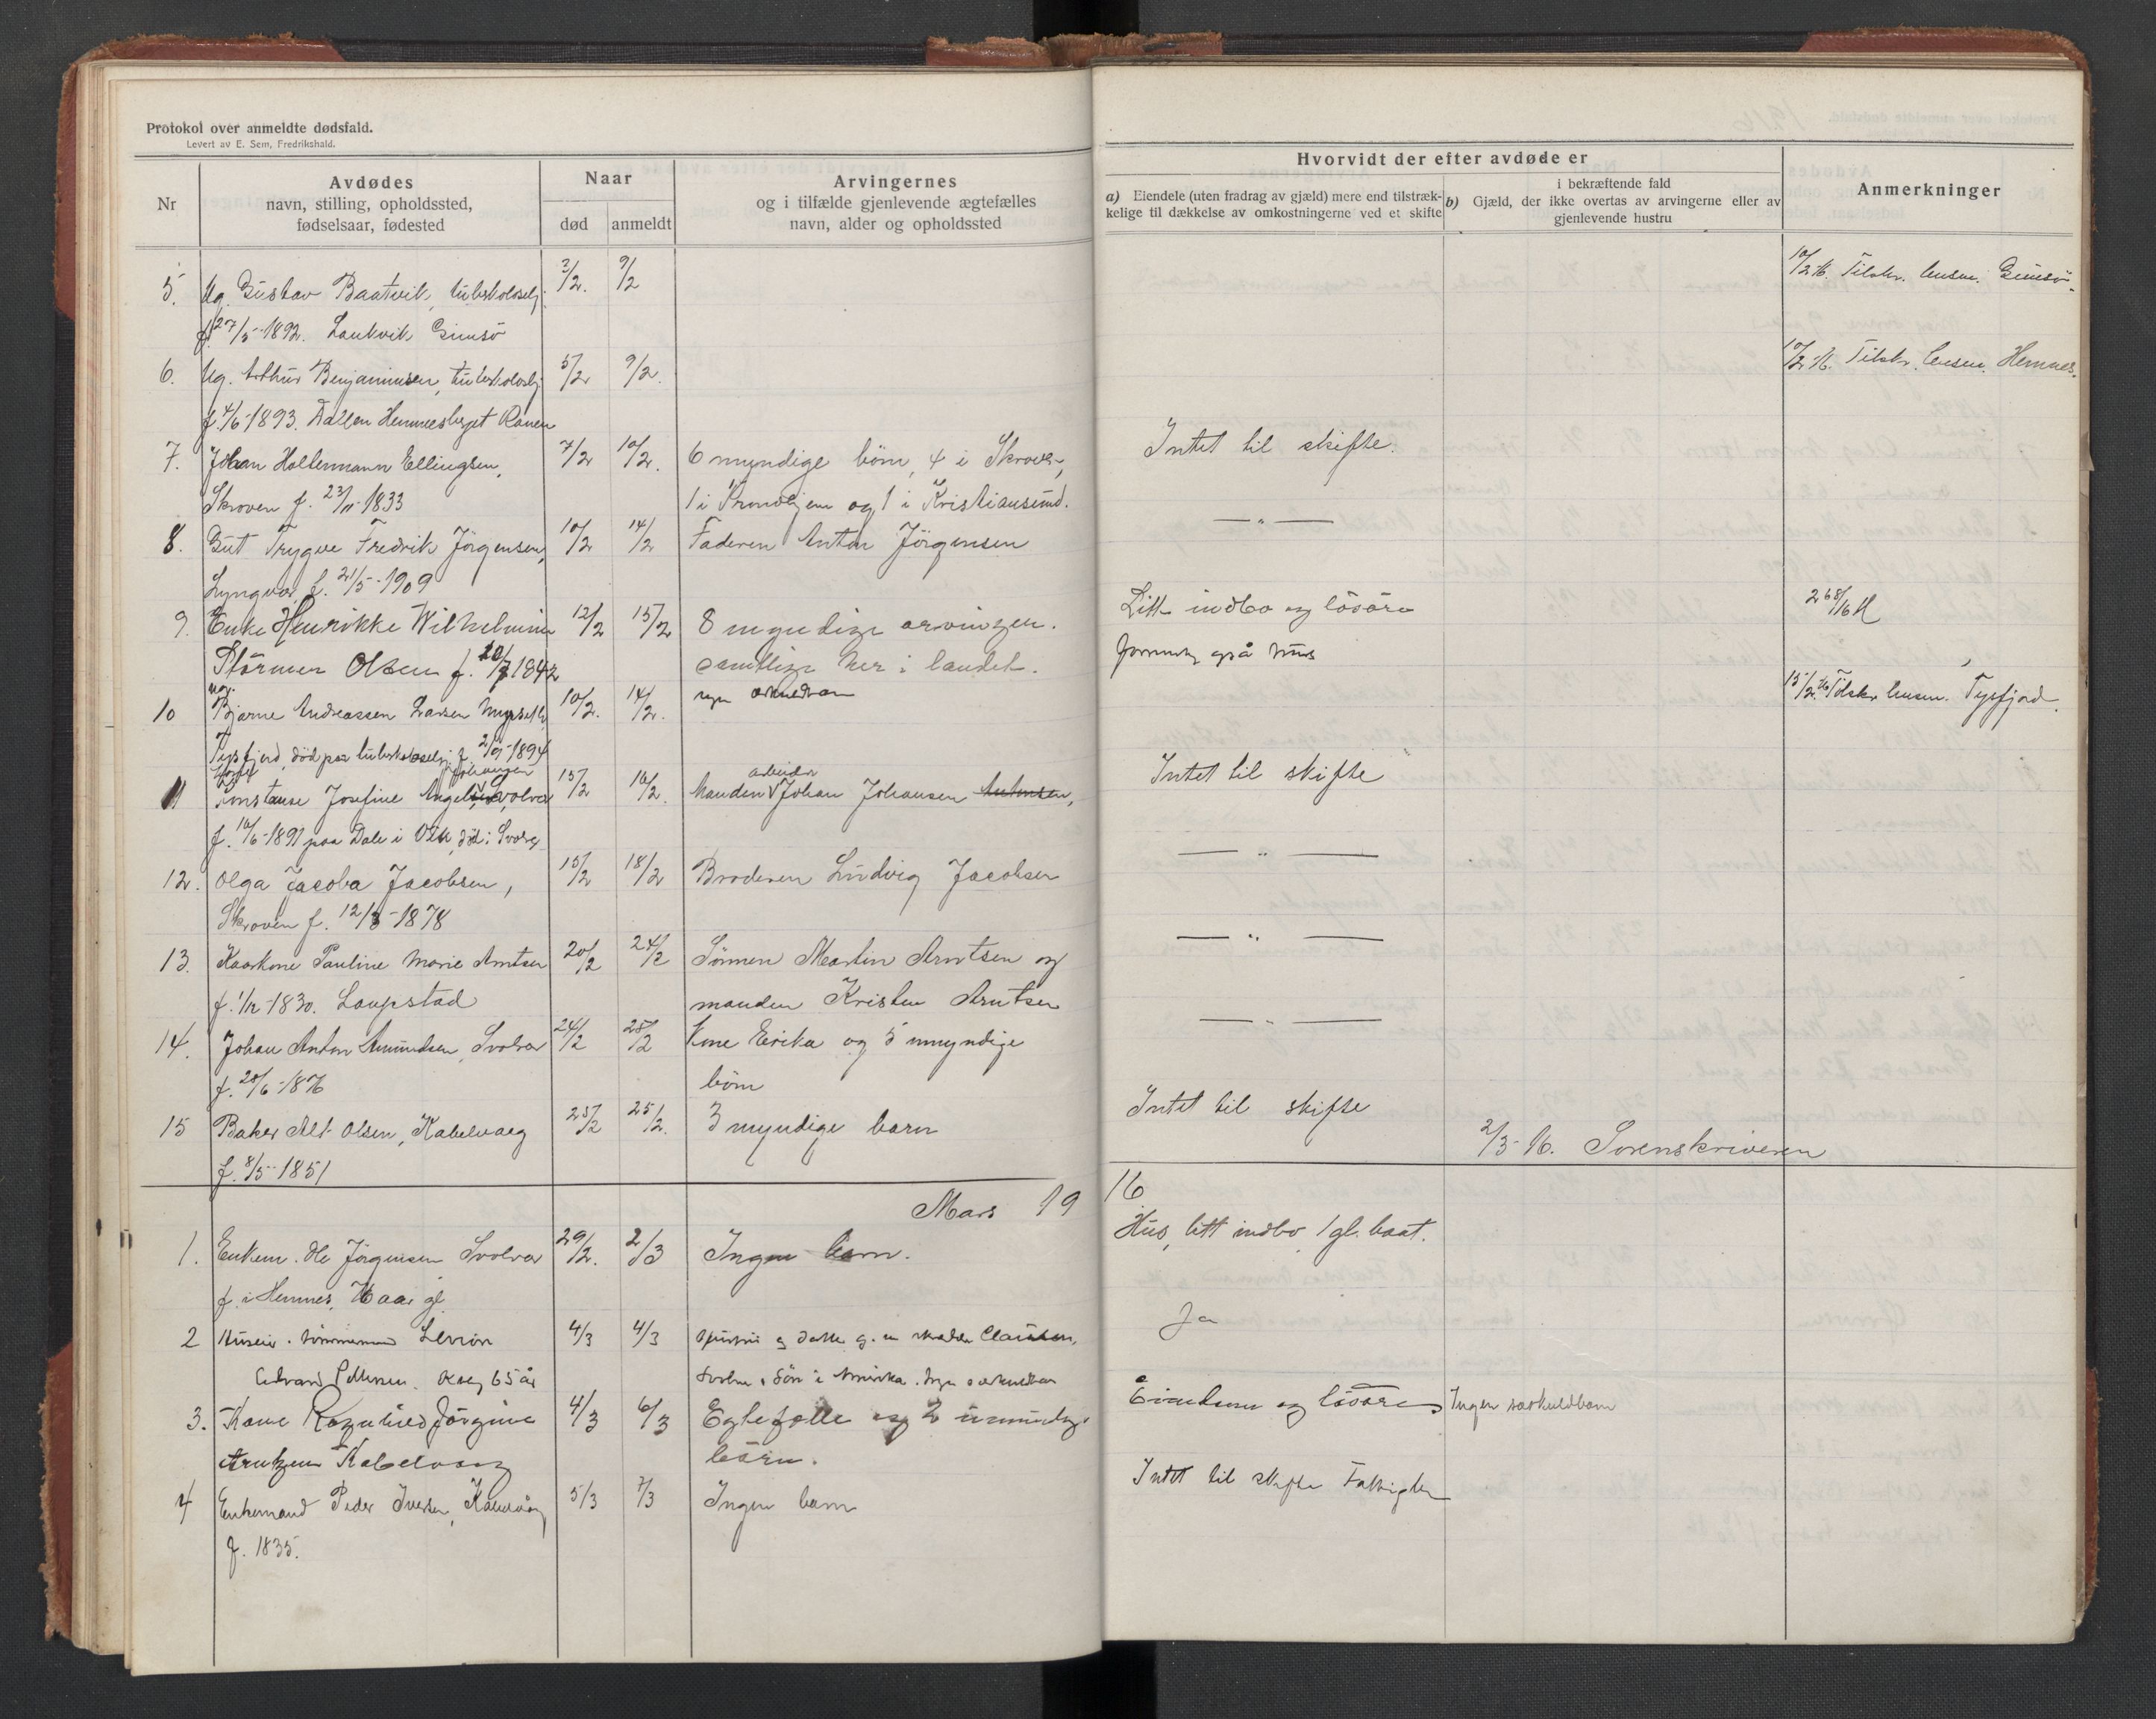 Protokol over anmeldte dødsfald.
Levert av E. Sem, Fredrikshald.
Nr
Avdødes
navn, stilling, opholdssted,
fødselsaar, fødested
Naar
død
anmeldt
Arvingernes
og i tilfælde gjenlevende ægtefælles
navn, alder og opholdssted
Hvorvidt der efter avdøde er
a) Eiendele (uten fradrag av gjæld) mere end tilstræk-
kelige til dækkelse av omkostningerne ved et skifte
i bekræftende fald
b) Gjæld, der ikke overtas av arvingerne eller av
gjenlevende hustru
Anmerkninger
5. Ug. Gustav Baatvik, tuberkuloselg. 2/2. 9/2 10/2 16. Tilskr. lensm. Gimsö.
f. 27/5-1892. Laukvik Gimsö
6. Ug. Arthur Benjaminsen, tuberkuloselg. 5/2 9/2. 10/2 16. Tilskr. lensm. Hemnes.
f. 4/6-1893. Hemnesberget Ranen
7. Johan Holtermann Ellingsen, 7/2 10/2. 6 myndige börn, 4 i Skroven, Intet til skifte.
Skroven f. 23/11-1833 1 i Trondhjem og 1 i Kristiansund.
8. Gut Trygve Fredrik Jörgensen, 10/2 14/2 Faderen Anton Jörgensen — " —
Lyngvær f. 21/5-1909
9. Enke Henrikke Wilhelmine 12/2 15/2 8 myndige arvinger. Litt indbo og lösöre
Störmer Olsen f. 20/7 1842 samtlige her i landet. også hus
10 ug. Bjarne Andreassen Larsen 10/2. 14/2. 15/2 16 Tilskr lensm. Tysfjord.
Tysfjord, död paa tuberkuloselg. f. 2/9-1894
11 Konstanse Josefine Svolvær 15/2 16/2. Manden arbeider Johan Johansen Antonsen, Intet til skifte
f. 16/6-1891 paa Dale i död i Svolvær
12. Olga Jacoba Jacobsen, 15/2 18/2 Broderen Ludvig Jacobsen — " —
Skroven f. 12/3-1878
13. Kaarkone Pauline Marie Arntsen 20/2 24/2 Sönnen Martin Arntsen og — " —
f. 1/12-1830. Laupstad manden Kristen Arntsen
14. Johan Anton Amundsen, Svolvær 24/2 25/2 Kone Erika og 5 umyndige — " —
f. 28/6-1876 börn
15 Baker Alt Olsen, Kabelvaag 23/2 25/2. 3 myndige barn Intet til skifte
f. 8/5-1851 2/3-16. Sorenskriveren
Mars 1916
1. Enkem. Ole Jörgensen Svolvær 29/2. 2/3 Ingen barn. Hus, litt indbo, 1 gl. baat.
f. i Hemnes, aar gl.
2 4/3 4/3 Ja
Edvard Pettersen. 65 år Sön i Amerika.
3. Kone Ragnhild Jörgine 4/3 6/3 Egtefælle og 2 umyndige Eiendom og lösöre Ingen særkuldbarn
Arntzen Kabelvaag börn.
4 Enkemand Peder Iversen, Kabelvåg 5/3 7/3 Ingen barn Intet til skifte Fattiglem
f. 1835.